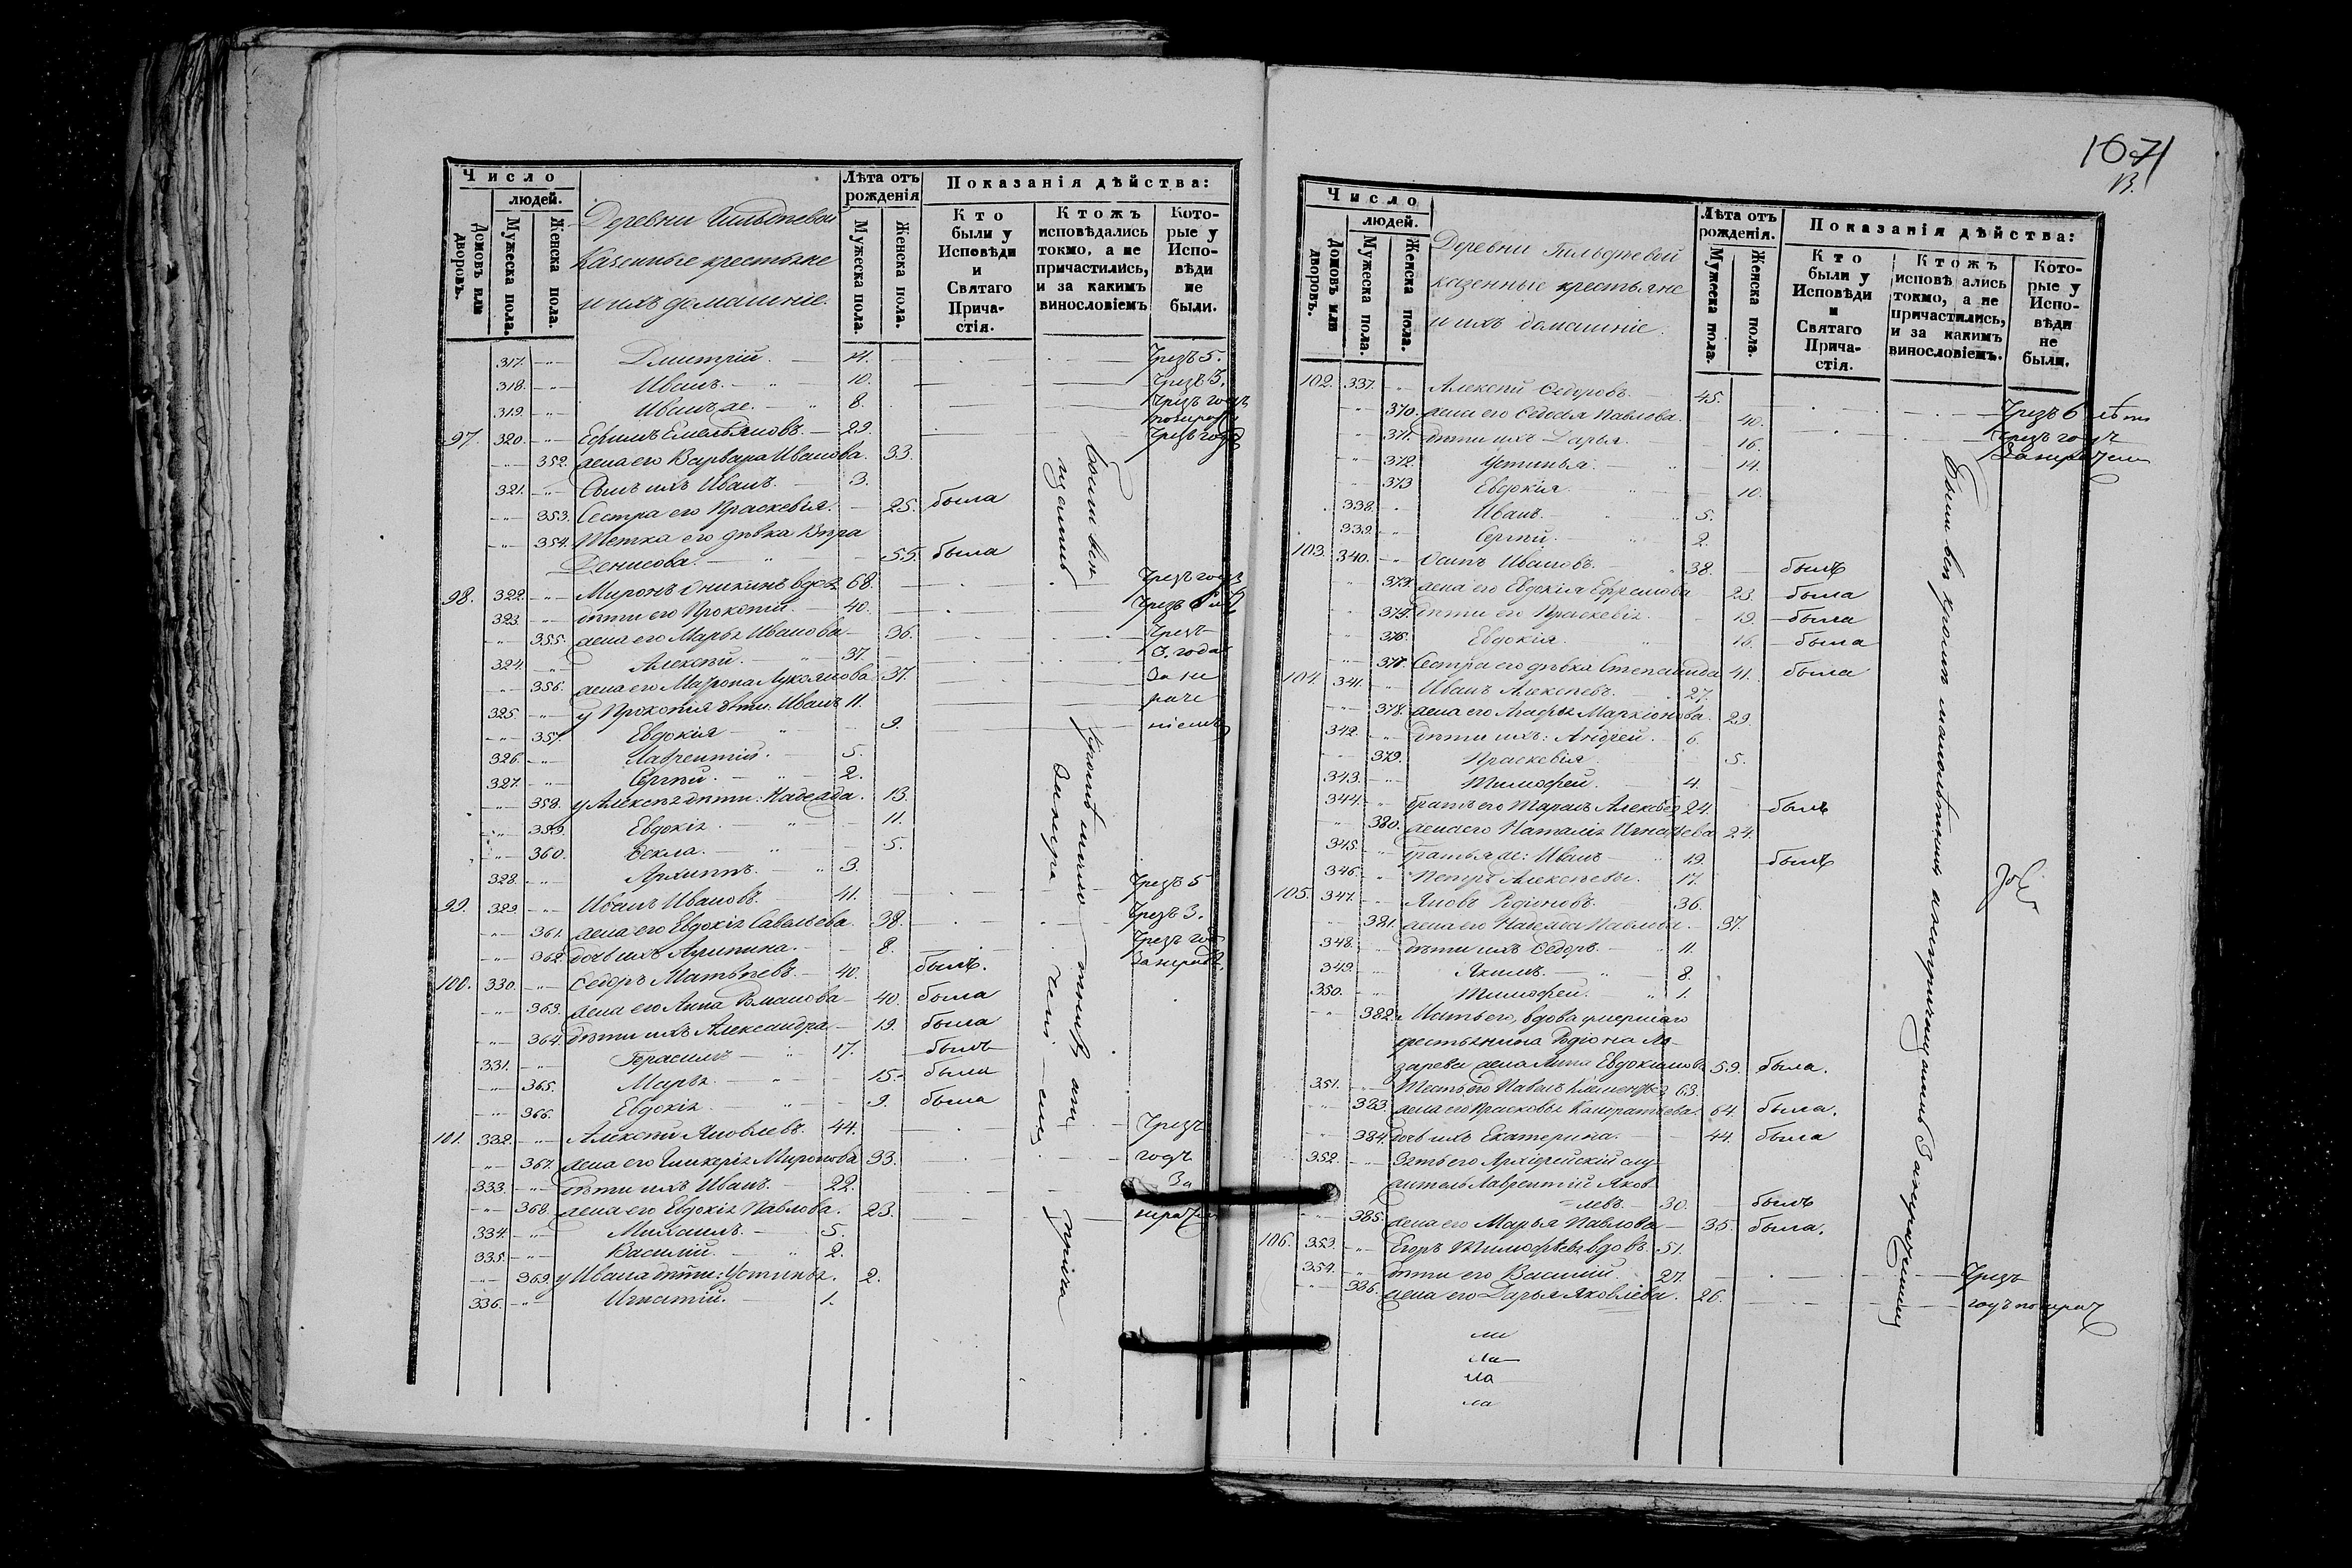 Число
людей.
Домовъ или дворовъ.
Мужеска пола.
Женска пола.
Деревни
казенные крестьяне
и ихъ домашніе.
Лѣта отъ рожденія
Мужеска пола.
Женска пола.
Показанія дѣйства:
Кто были у Исповѣди и Святаго Прича-стія.
Ктожъ исповѣдались токмо, а не причастились, и за какимъ винословіемъ
Кото-рые у Испо-вѣди не были.
317. Дмитрій. Чрезъ 5.
318. Иванъ. 10. Чрезъ 3.
319. Иванъ же. 8. Чрезъ годъ
97. 320. Ефимъ Емельяновъ. 29.
352. жена его Варвара Иванова. 33.
321. Сынъ ихъ Иванъ. 3.
353. Сестра его Праскевія. 25. была
354. Тетка его дѣвка Вѣра
Денисова. 55. была
98. 322. Миронъ Оникинъ вдов 68. Чрезъ годъ
323. дѣти его Прокопій. 40.
355. жена его Марья Иванова 36. Чрезъ
324. Алексѣй. 37. 3. года
356. жена его Матрона Лукоянова 37. За не
325. у Прокопія дѣти: Иванъ 11. раче
357. Евдокія 9. ніемъ
326. Лаврентій. 5.
327. Сергѣй. 2.
358. у Алексѣя дѣти: Надежда. 13.
359. Евдокія. 11.
360. Фекла. 5.
328. Архиппъ. 3.
99. 329. Иванъ Ивановъ. 41. Чрезъ 5
361. жена его Евдокія Савельева 38. Чрезъ 3.
362. дочь ихъ Акилина. 8. Чрезъ год
100. 330. Ѳедоръ Матвѣевъ. 40. былъ.
363. жена его Анна Романова 40. была
364. дѣти ихъ Александра 19. была
331. Герасимъ 17. былъ
365. Марья. 15. была
366. Евдокія 9. была
101. 332. Алексѣй Яковлевъ. 44. Чрезъ
367. жена его Гликерія Миронова 33. годъ
333. дѣти ихъ Иванъ. 22. За
368. жена его Евдокія Павлова. 23.
334. Михаилъ. 5.
335. Василій. 2.
369. у Ивана дѣти: Устинья. 2.
336. Игнатій. 1.
1671
Число
людей.
Домовъ или дворовъ.
Мужеска пола.
Женска пола.
Деревни
казенные крестьяне
и ихъ домашніе.
Лѣта отъ рожденія.
Мужеска пола.
Женска пола.
Показанія дѣйства:
Кто были у Исповѣди и Святаго Прича-стія.
Ктожъ исповѣдались токмо, а не причастились, и за какимъ винословіемъ.
Кото-рые у Испо-вѣди не были.
102. 337. Алексѣй Ѳедоровъ. 45. Чрезъ 6 лѣтъ
370. жена его Ѳедосья Павлова. 40. Чрезъ годъ
371. дѣти ихъ Дарья. 16.
372. Устинья. 14.
373. Евдокія. 10.
338. Иванъ. 5.
339. Сергѣй. 2.
103. 340. Осипъ Ивановъ. 38. былъ
жена его Евдокія Ефремова 23. была
375. дѣти его Праскевія. 19. была
376. Евдокія. 16. была
377. Сестра его дѣвка Степанида 41. была
104. 341. Иванъ Алексѣевъ. 27.
378. жена его Агафья Маркіонова. 29.
342. дѣти ихъ: Андрей. 6.
379. Праскевія 5.
343. Тимофей. 4.
344. братъ его Тарасъ Алексѣев 24. былъ
380. жена его Наталія Игнатьева 24.
345. братья же: Иванъ 19. былъ
346. Петръ Алексѣевы. 17.
105. 347. Яковъ Родіоновъ. 36.
381. жена его Надежда Павлова. 37.
348. дѣти ихъ Ѳедоръ. 11.
349. Якимъ. 8.
350. Тимофей. 1.
382. Мать его, вдова умершаго
крестьянина Родіона Ла-
зарева жена Анна Евдокимова 59. была.
351. Тесть его Павелъ 63.
383. жена его Прасковья 64. была.
384. дочь ихъ Екатерина. 44. была
352. Зять его Архіерейскій слу-
житель Лаврентій Яков
=левъ. 30. былъ
385. жена его Марья Павлова 35. была.
106. 353. Егоръ Тимофѣевъ вдовъ. 51.
354. дѣти его Василій. 27. Чрезъ
386. жена его Дарья Яковлева. 26.